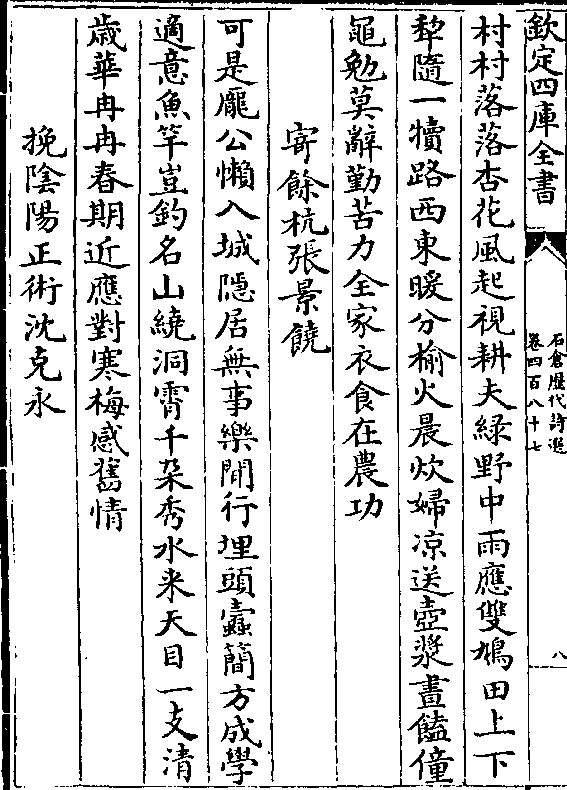 欽定四庫全書
石倉歷代詩選
卷四百八十七
八
村村落落杏花風起視耕夫綠野中雨應雙鳩田上下
犂隨一犢路西東暖分榆火晨炊婦凉送壺漿晝饁僮
黽勉莫辭勤苦力全家衣食在農功
寄餘杭張景饒
可是龐公懶入城隱居無事樂閒行埋頭蠧簡方成學
適意魚竿豈釣名山繞洞霄千朶秀水来天目一支清
歳華冉冉春期近應對寒梅感舊情
挽陰陽正術沈克永